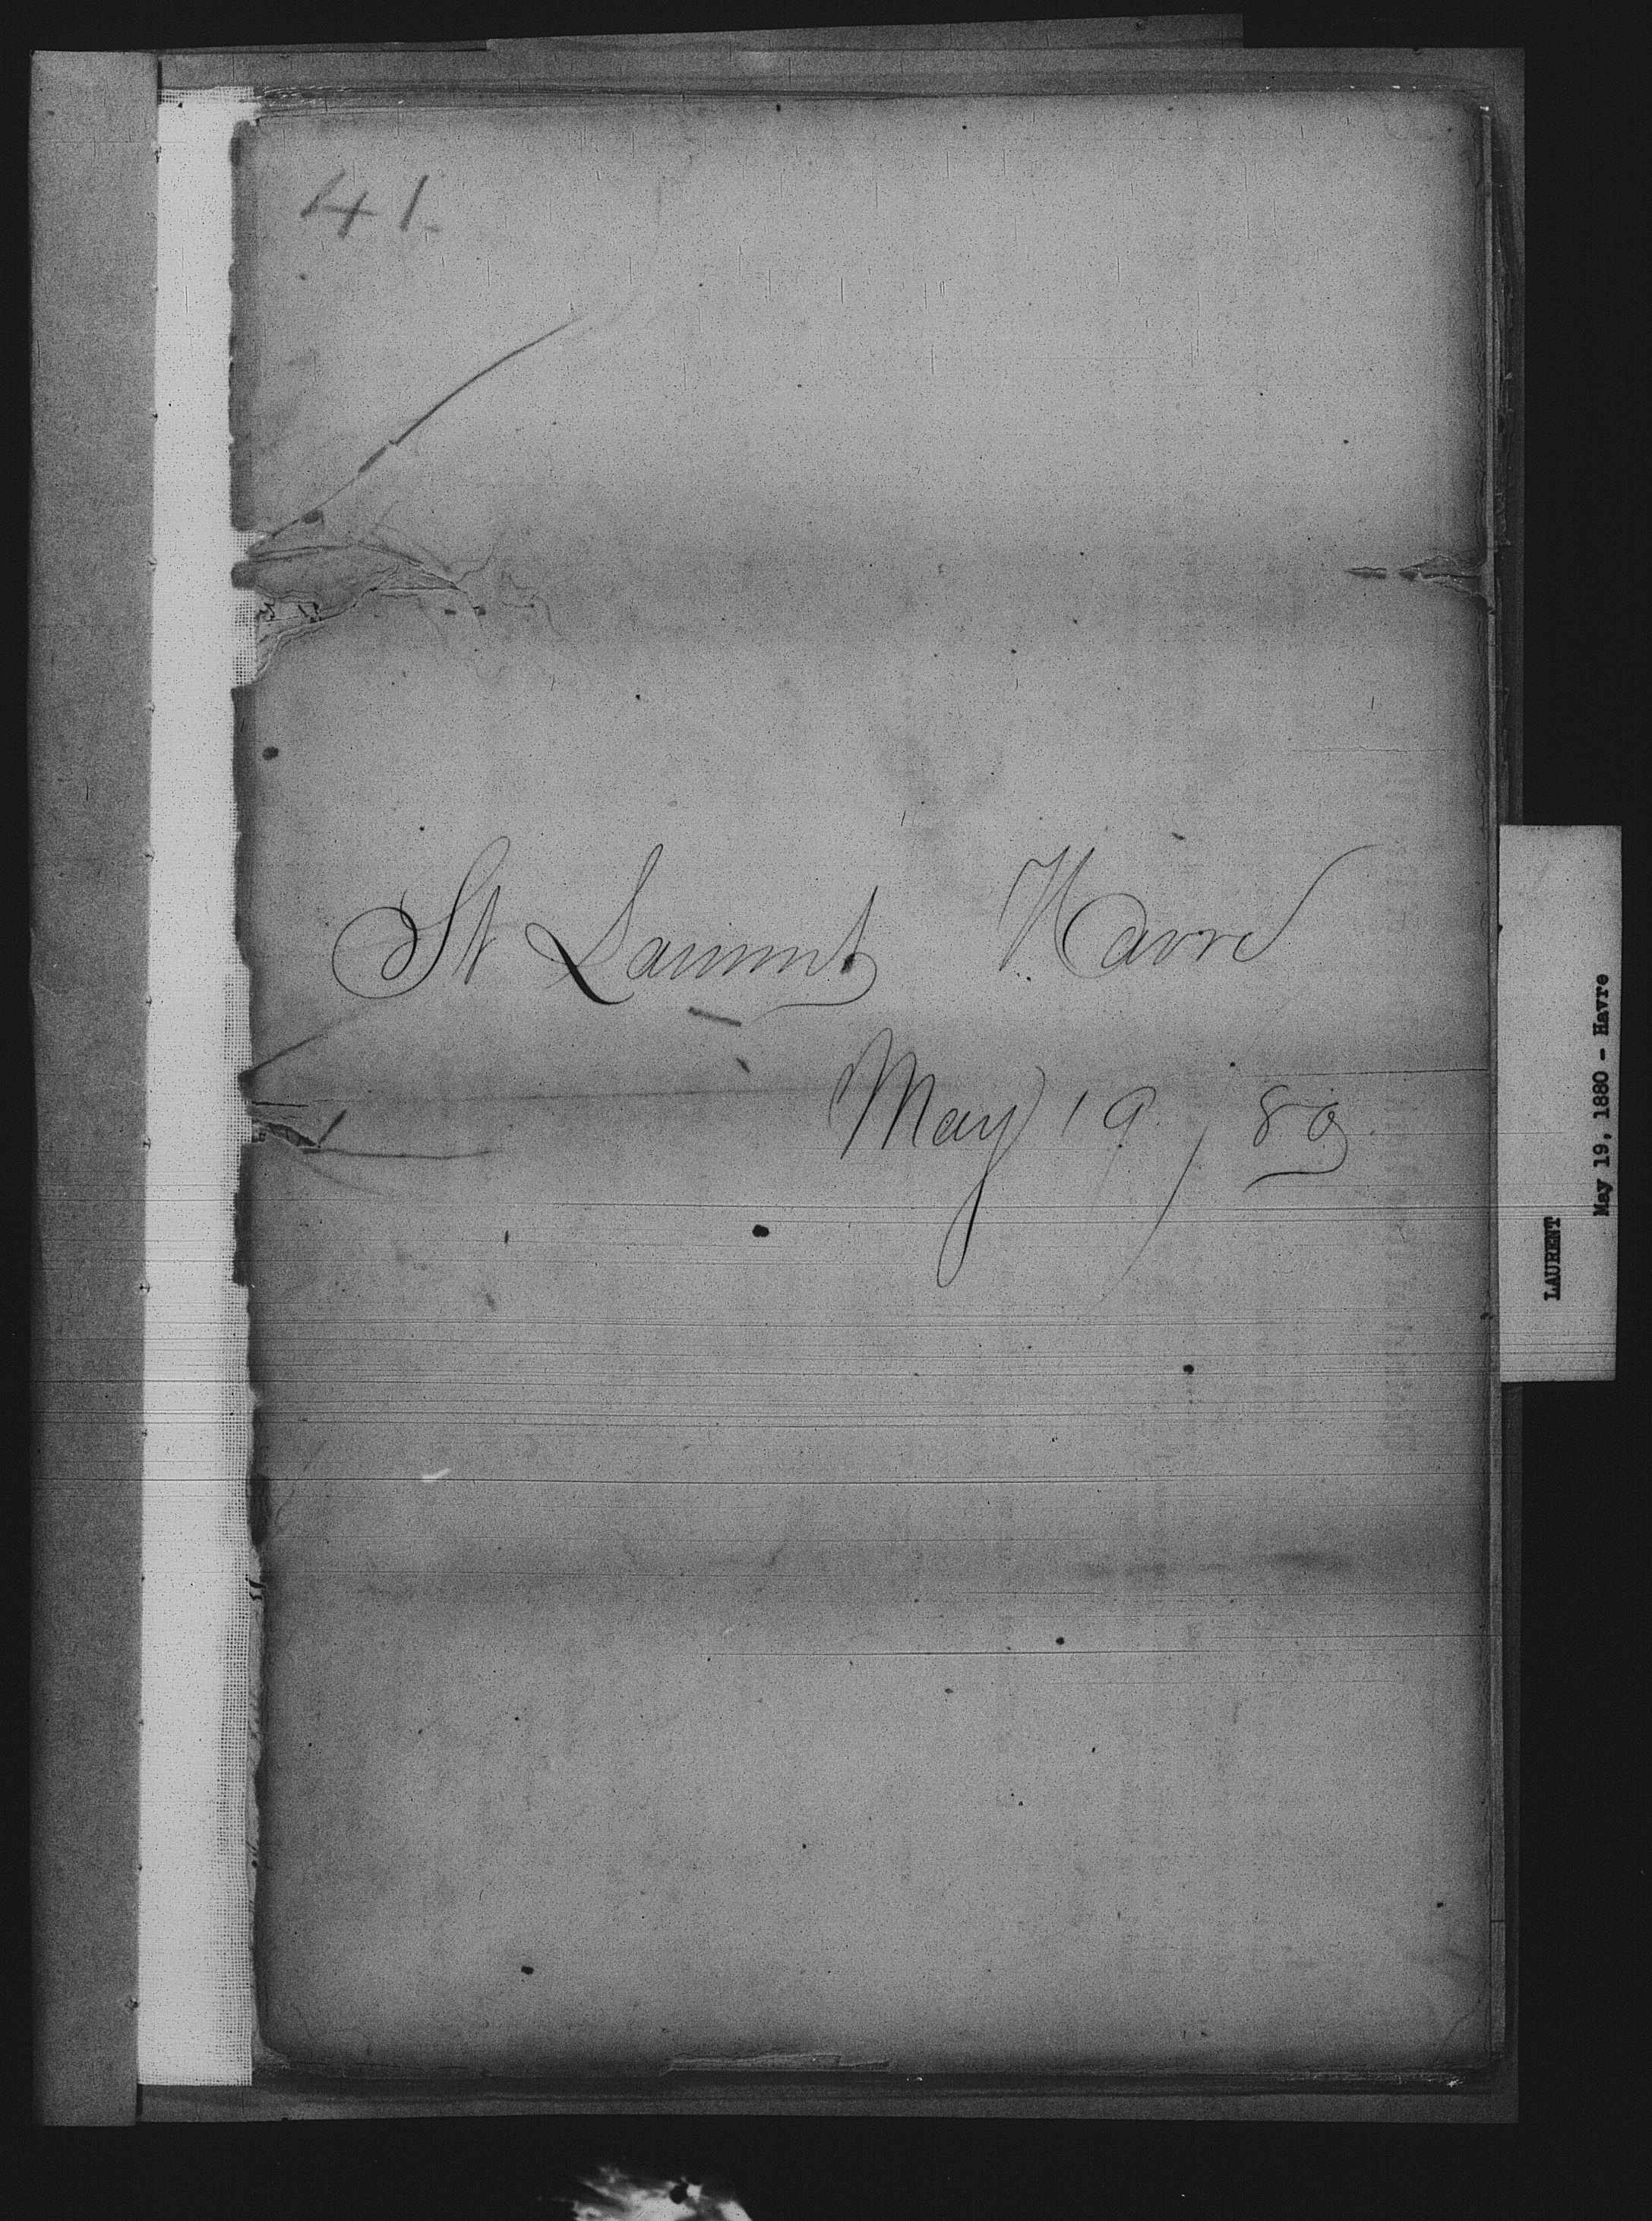 41.
St Laurent Havre
May 19. / 80.
LAURENT
May 19, 1880 - Havre